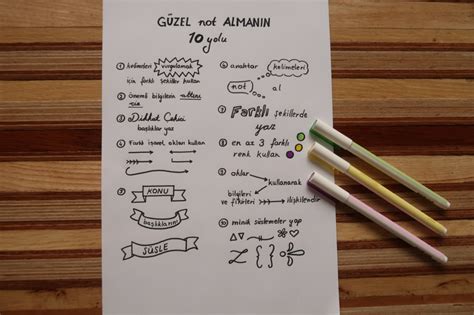 GÜZEL not ALMANIN
10 yolu
① kelimeleri vurgulamak
için farklı şekiller kullan
② önemli bilgilerin altını
çiz
③ Dikkat Çekici
başlıklar yaz
④ Farklı işaret okları kullan
⑤ KONU
başlıklarını
SÜSLE
⑥ anahtar kelimeleri
not al
⑦ Farklı şekillerde
yaz
⑧ en az 3 farklı
renk kullan
⑨ oklar
kullanarak
bilgileri
ve fikirleri ilişkilendir
⑩ minik süslemeler yap